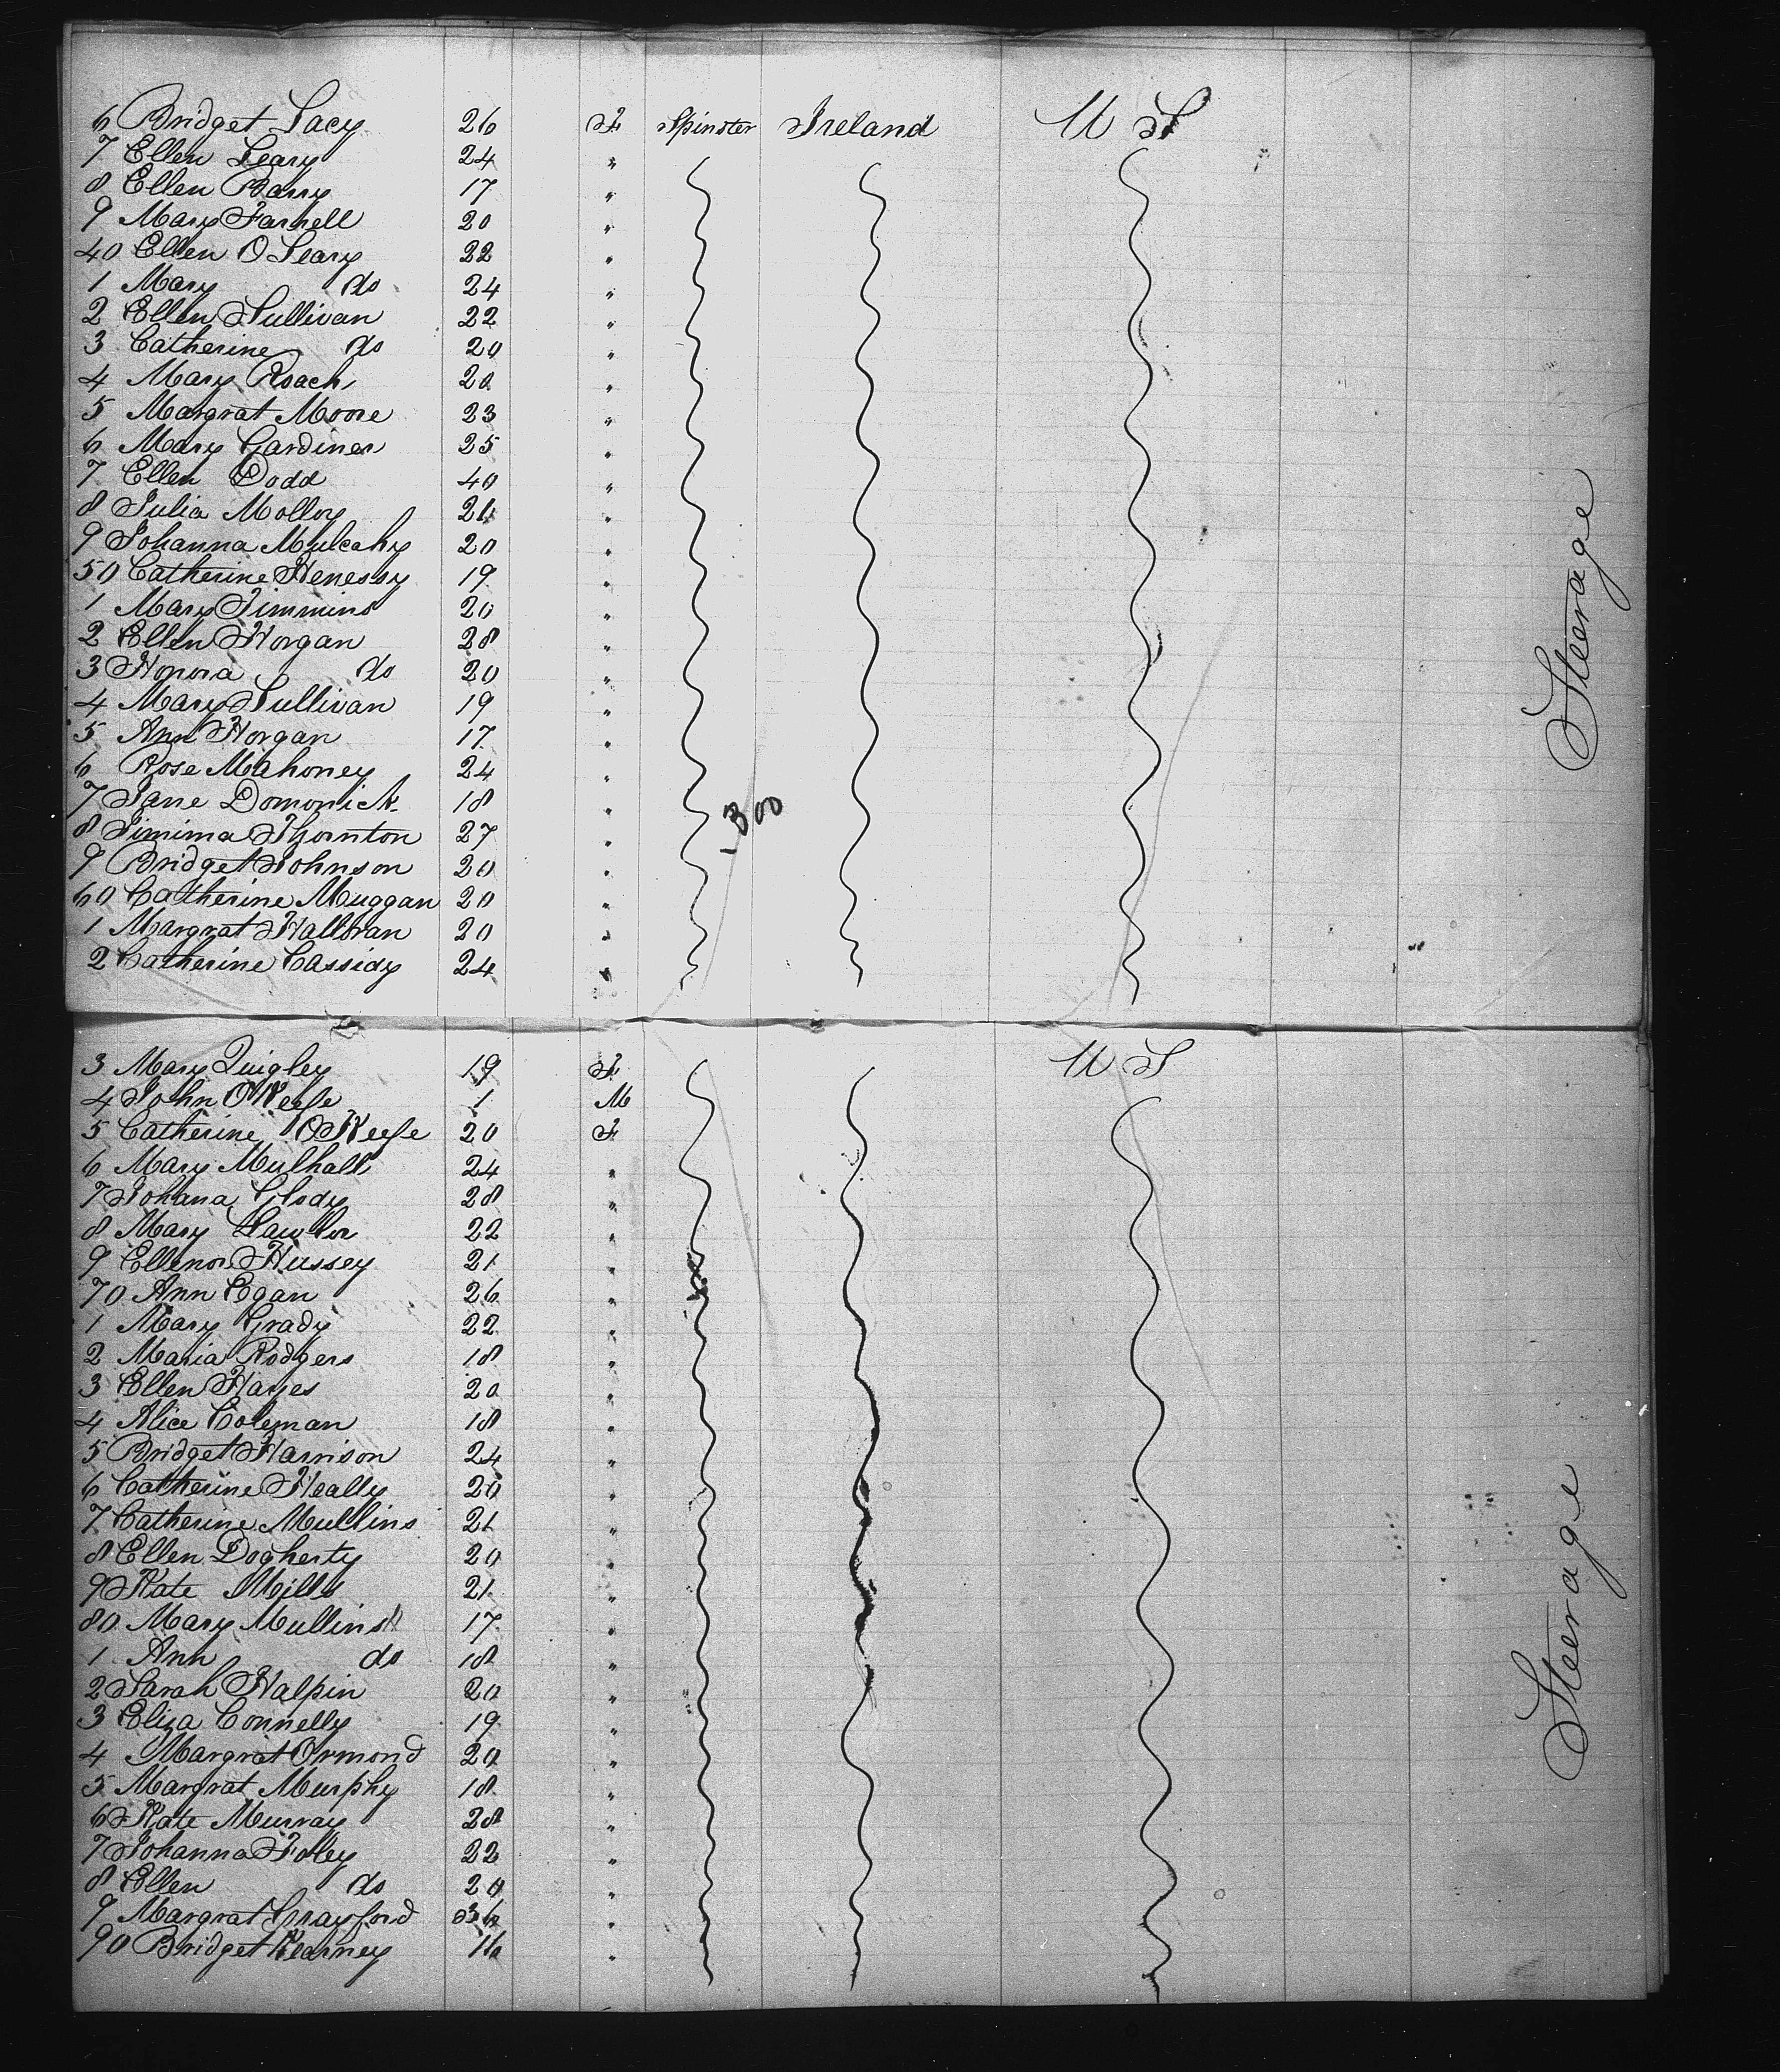 6 Bridget Lacy 26 F Spinster Ireland U S
7 Ellen Leary 24 "
8 Ellen Barry 17 "
9 Mary Farrell 20 "
40 Ellen O Leary 22 "
1 Mary do 24 "
2 Ellen Sullivan 22 "
3 Catherine do 20 "
4 Mary Roach 20 "
5 Margrat Moore 23 "
6 Mary Gardiner 25 "
7 Ellen Dodd 40 "
8 Julia Molloy 26 "
9 Johanna Mulcahy 20 "
50 Catherine Henessy 19 "
1 Mary Timmins 20 "
2 Ellen Horgan 28 "
3 Honora do 20 "
4 Mary Sullivan 19 "
5 Ann Horgan 17 "
6 Rose Mahoney 24 "
7 Jane Domonick 18 "
300
8 Jimima Thornton 27 "
9 Bridget Johnson 20 "
60 Catherine Muggan 20 "
1 Margrat Halloran 20 "
2 Catherine Cassidy 24 "
Steerage
3 Mary Quigley 19 F U S
4 John O Keefe 1 M
5 Catherine O Keefe 20 F
6 Mary Mulhall 24 "
7 Johana Glody 28 "
8 Mary Lawlor 22 "
9 Ellenor Hussey 21 "
70 Ann Egan 26 "
1 Mary Grady 22 "
2 Maria Rodgers 18 "
3 Ellen Hayes 20 "
4 Alice Coleman 18 "
5 Bridget Harrison 24 "
6 Catherine Heally 20 "
7 Catherine Mullins 21 "
8 Ellen Dogherty 20 "
9 Kate Mills 21 "
80 Mary Mullins 17 "
1 Ann do 18 "
2 Sarah Halpin 20 "
3 Eliza Connelly 19 "
4 Margrat Ormond 20 "
5 Margrat Murphy 18 "
6 Kate Murray 28 "
7 Johanna Foley 22 "
8 Ellen do 20 "
9 Margrat Grayford 36 "
90 Bridget Kearney 16 "
Steerage